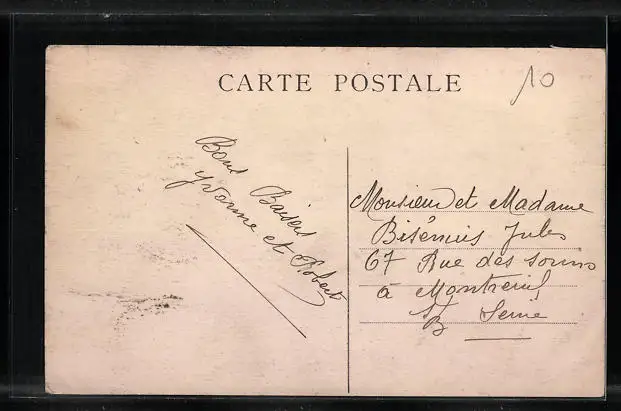 CARTE POSTALE
10
Bons Baisers
Yvonne et Robert
Monsieur et Madame
Jules
67 Rue des
à Montreuil
s/B Seine